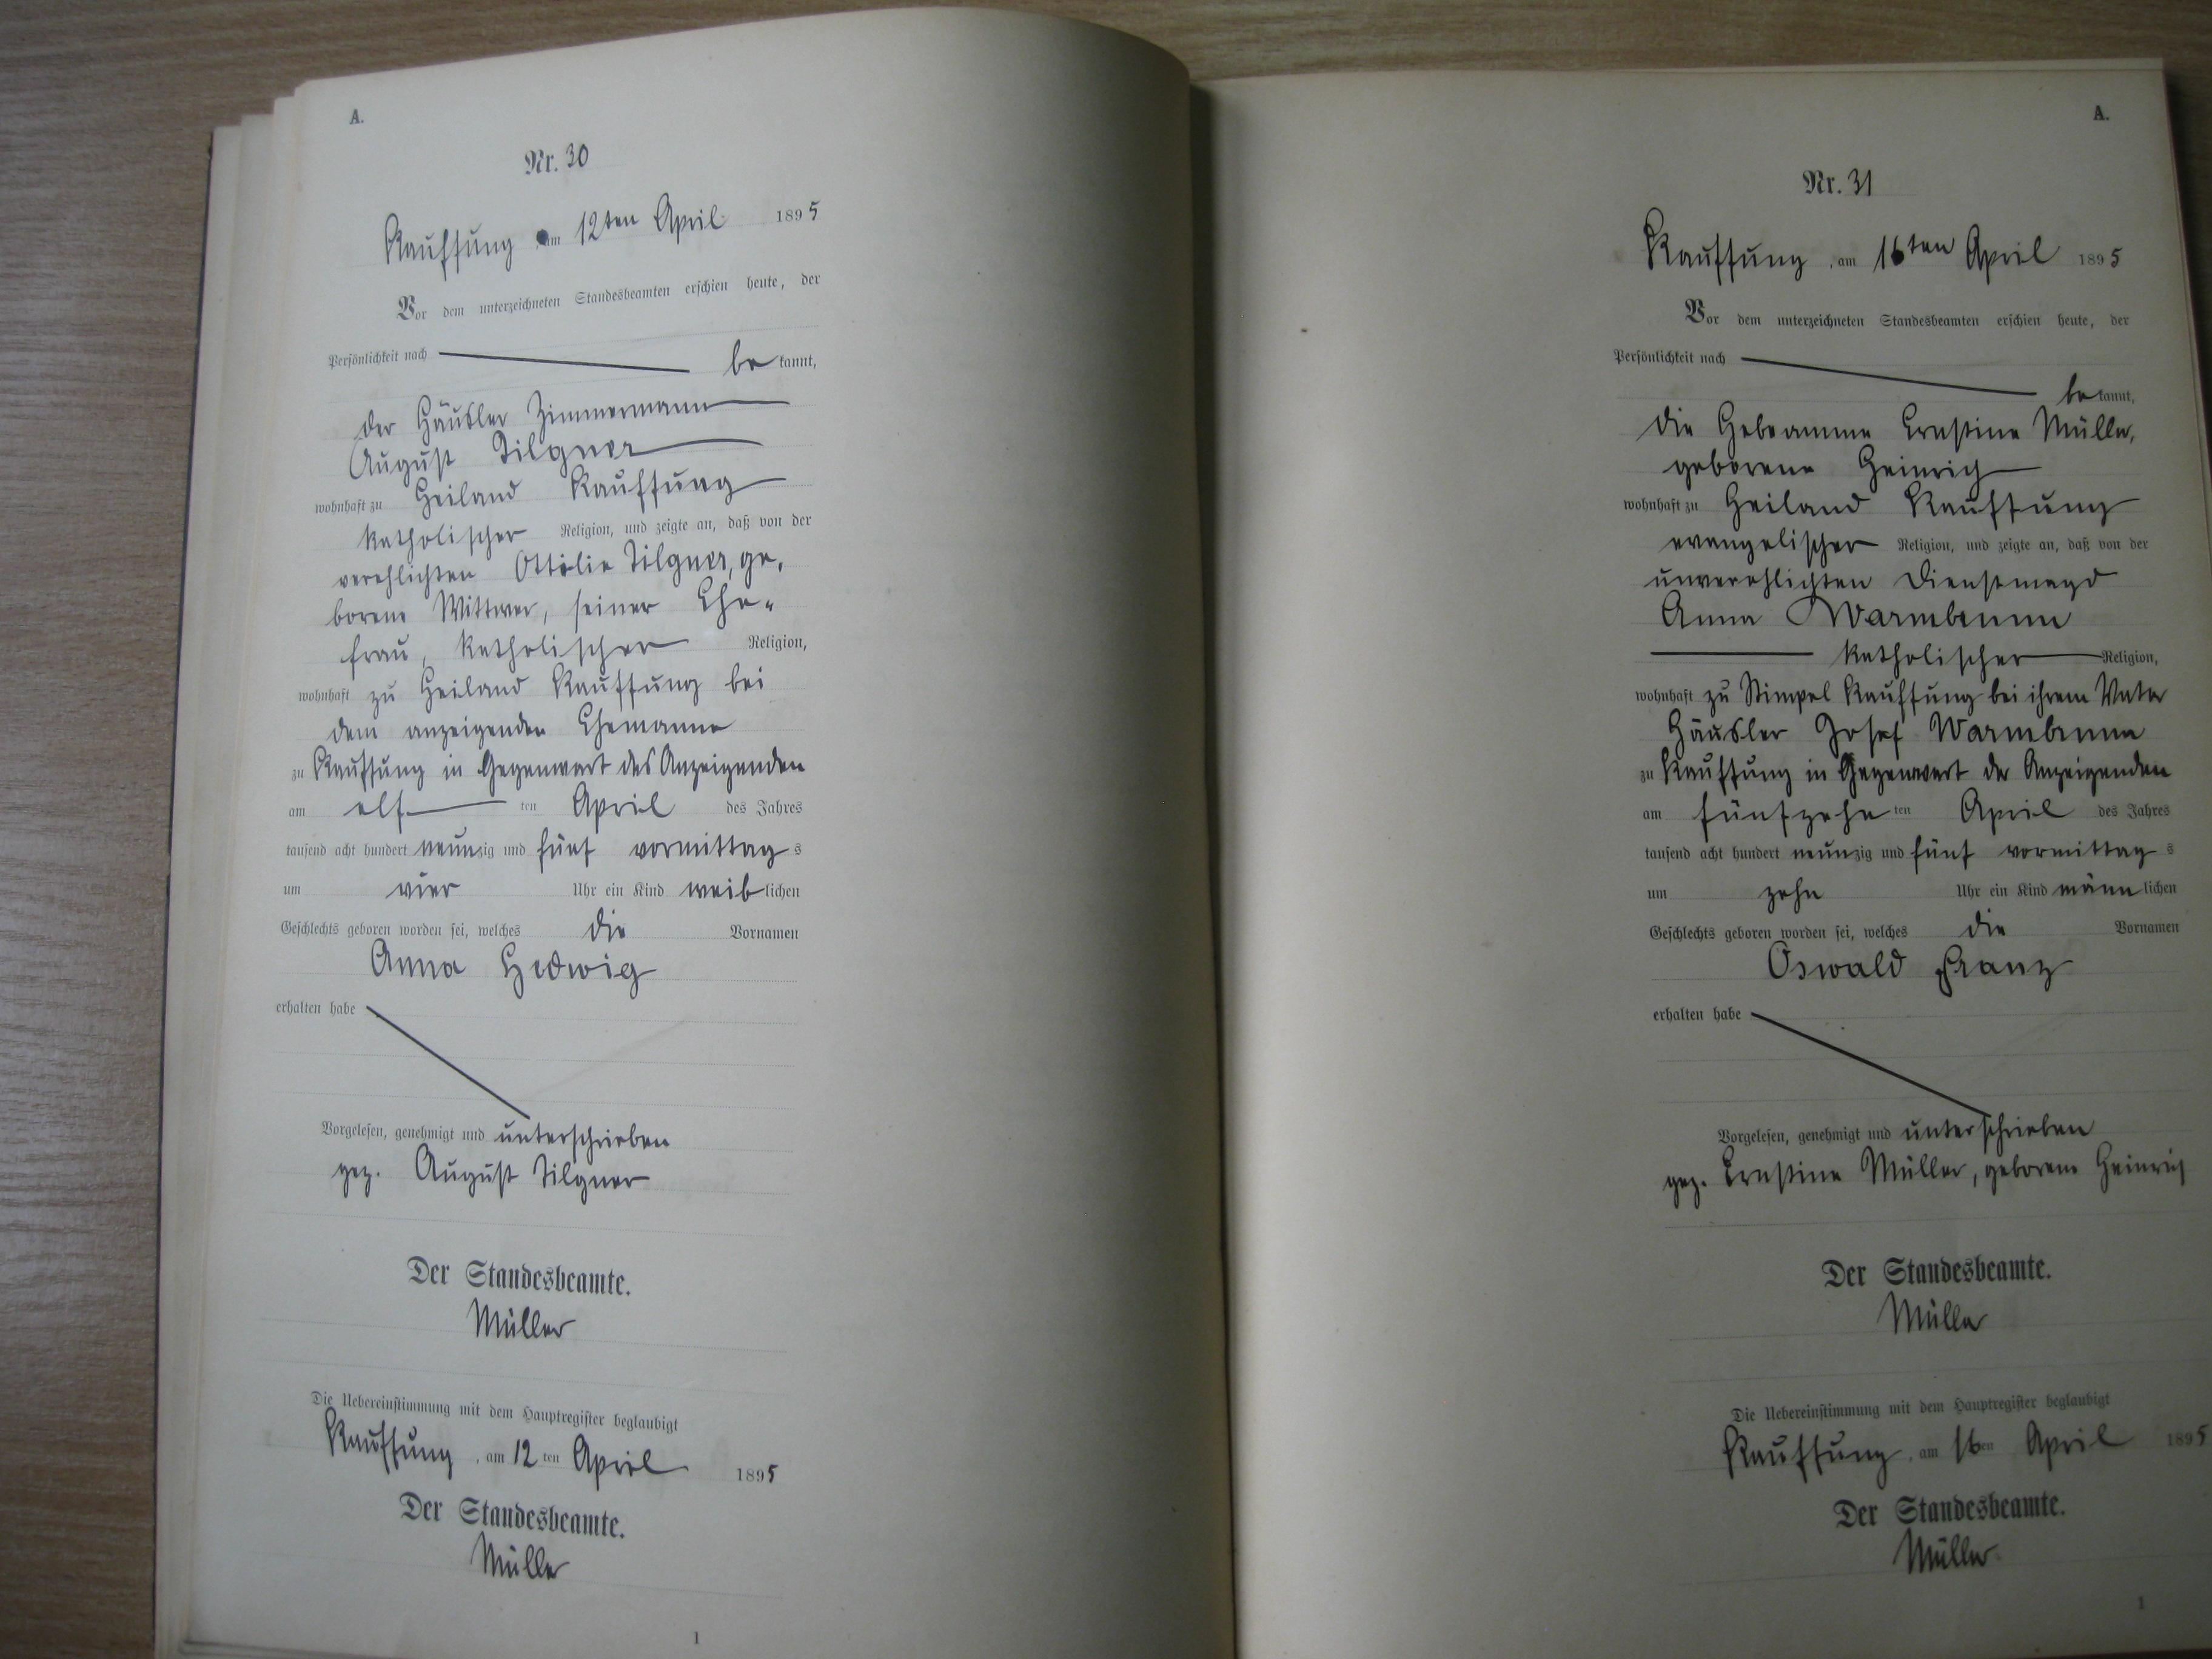 A.
Nr. 30
Kauffung, am 12ten April 1895
Vor dem unterzeichneten Standesbeamten erschien heute, der
Persönlichkeit nach
bekannt,
der Häusler Zimmermann
August Tilgner
wohnhaft zu Heiland Kauffung
katholischer Religion, und zeigte an, daß von der
verehlichten Ottilie Tilgner, ge,
borene Wittwer, seiner Ehe-
frau, katholischer Religion,
wohnhaft zu Heiland Kauffung bei
dem anzeigenden Ehemanne
zu Kauffung in Gegenwart des Anzeigenden
am elf ten April des Jahres
tausend acht hundert neunzig und fünf vormittags
um vier Uhr ein Kind weiblichen
Geschlechts geboren worden sei, welches die Vornamen
Anna Hedwig
erhalten habe
Vorgelesen, genehmigt und unterschrieben
gez. August Tilgner
Der Standesbeamte.
Müller
Die Uebereinstimmung mit dem Hauptregister beglaubigt
Kauffung, am 12 ten April 1895
Der Standesbeamte.
Müller
1
A.
Nr. 31
Kauffung, am 16ten April 1895
Vor dem unterzeichneten Standesbeamten erschien heute, der
Persönlichkeit nach
bekannt,
die Hebeamme Ernstine Müller,
geborene Heinrich
wohnhaft zu Heiland Kauffung
evangelischer Religion, und zeigte an, daß von der
unverehlichten Dienstmagd
Anna Warmbrunn
katholischer Religion,
wohnhaft zu Stimpel Kauffung bei ihrem Vater
Häusler Josef Warmbrunn
zu Kauffung in Gegenwart der Anzeigenden
am fünfzehn ten April des Jahres
tausend acht hundert neunzig und fünf vormittags
um zehn Uhr ein Kind männlichen
Geschlechts geboren worden sei, welches die Vornamen
Oswald Franz
erhalten habe
Vorgelesen, genehmigt und unterschrieben
gez. Ernstine Müller, geborene Heinrich
Der Standesbeamte.
Müller
Die Uebereinstimmung mit dem Hauptregister beglaubigt
Kauffung, am 16ten April 1895
Der Standesbeamte.
Müller
1